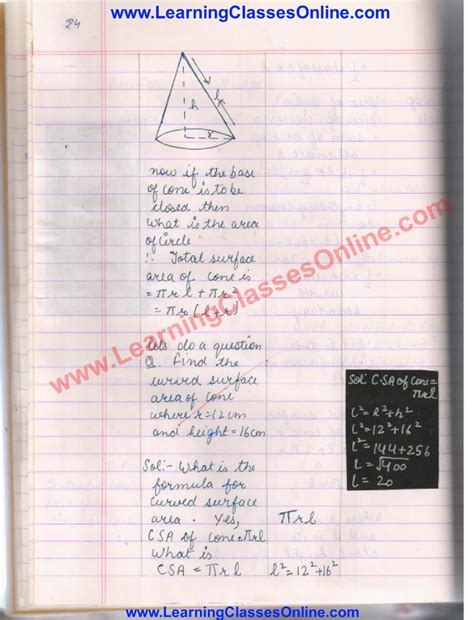 www.LearningClassesOnline.com
24
h
l
r
now if the base
of cone is to be
closed then
What is the area
of circle
∴ Total surface
area of cone is
= πrl + πr²
= πr (l+r)
lets do a question
Q. Find the
curved surface
area of cone
where r=12cm
and height=16cm
Sol:- What is the
formula for
curved surface
area. Yes, πrl
CSA of cone=πrl
What is
CSA = πrl l²=12²+16²
Sol: CSA of Cone=
πrl
l²=r²+h²
l²=12²+16²
l²=144+256
l=√400
l=20
www.LearningClassesOnline.com
www.LearningClassesOnline.com
www.LearningClassesOnline.com